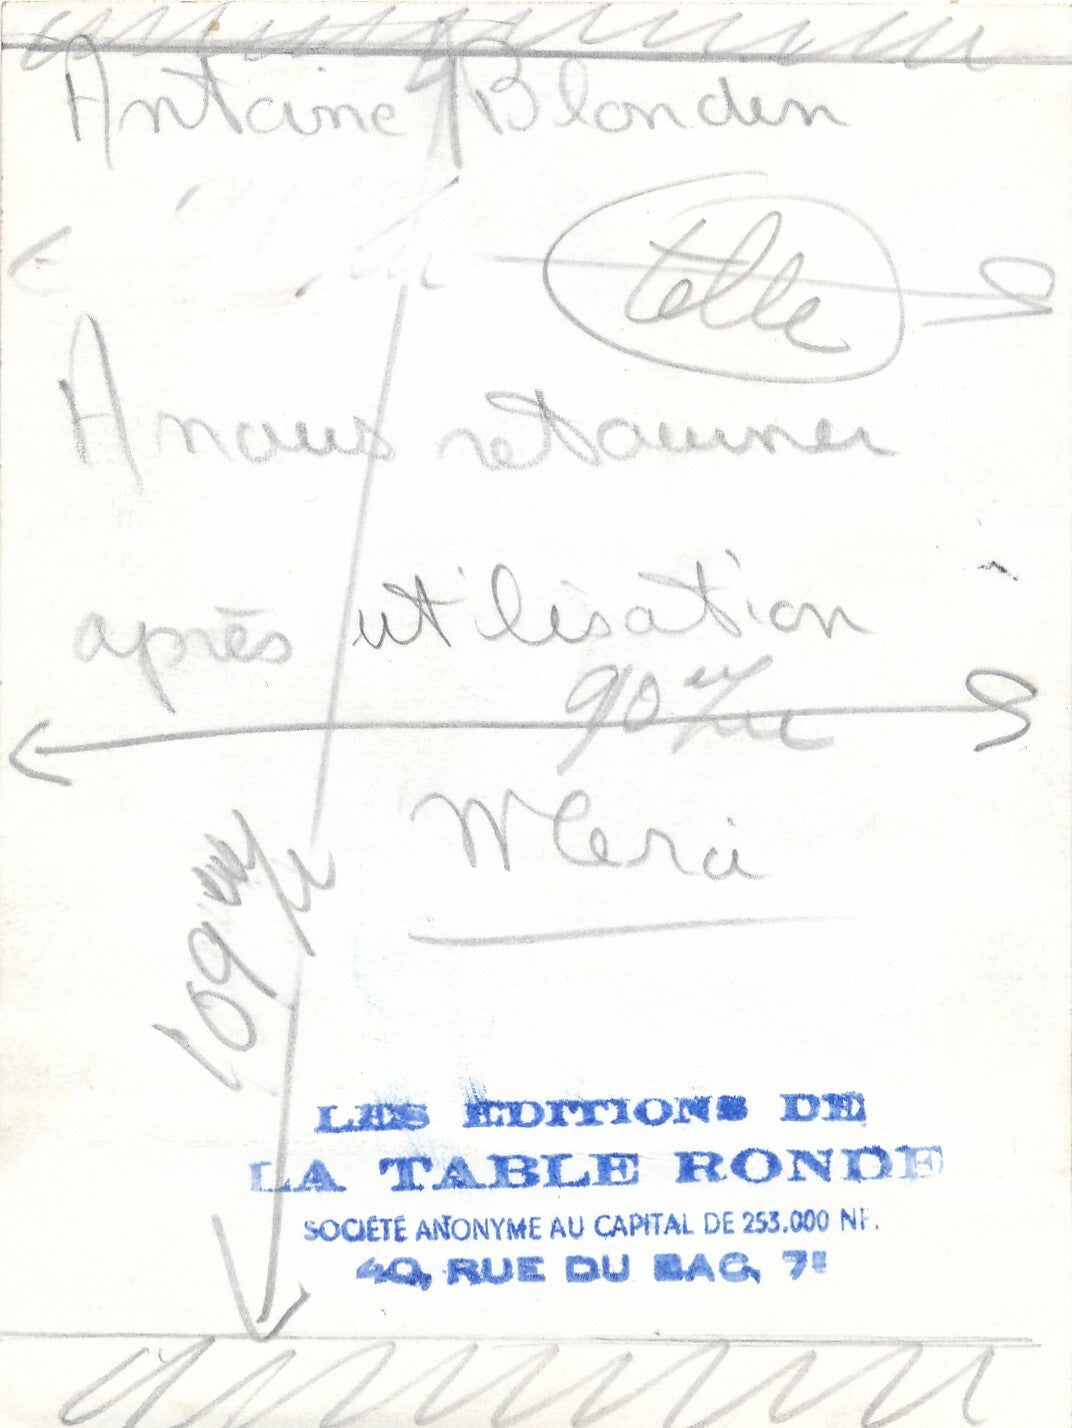 Antoine Blondin
telle
A nous retourner
après utilisation
90
Merci
109
LES EDITIONS DE
LA TABLE RONDE
SOCIÉTÉ ANONYME AU CAPITAL DE 253.000 NF.
40, RUE DU BAC, 7e